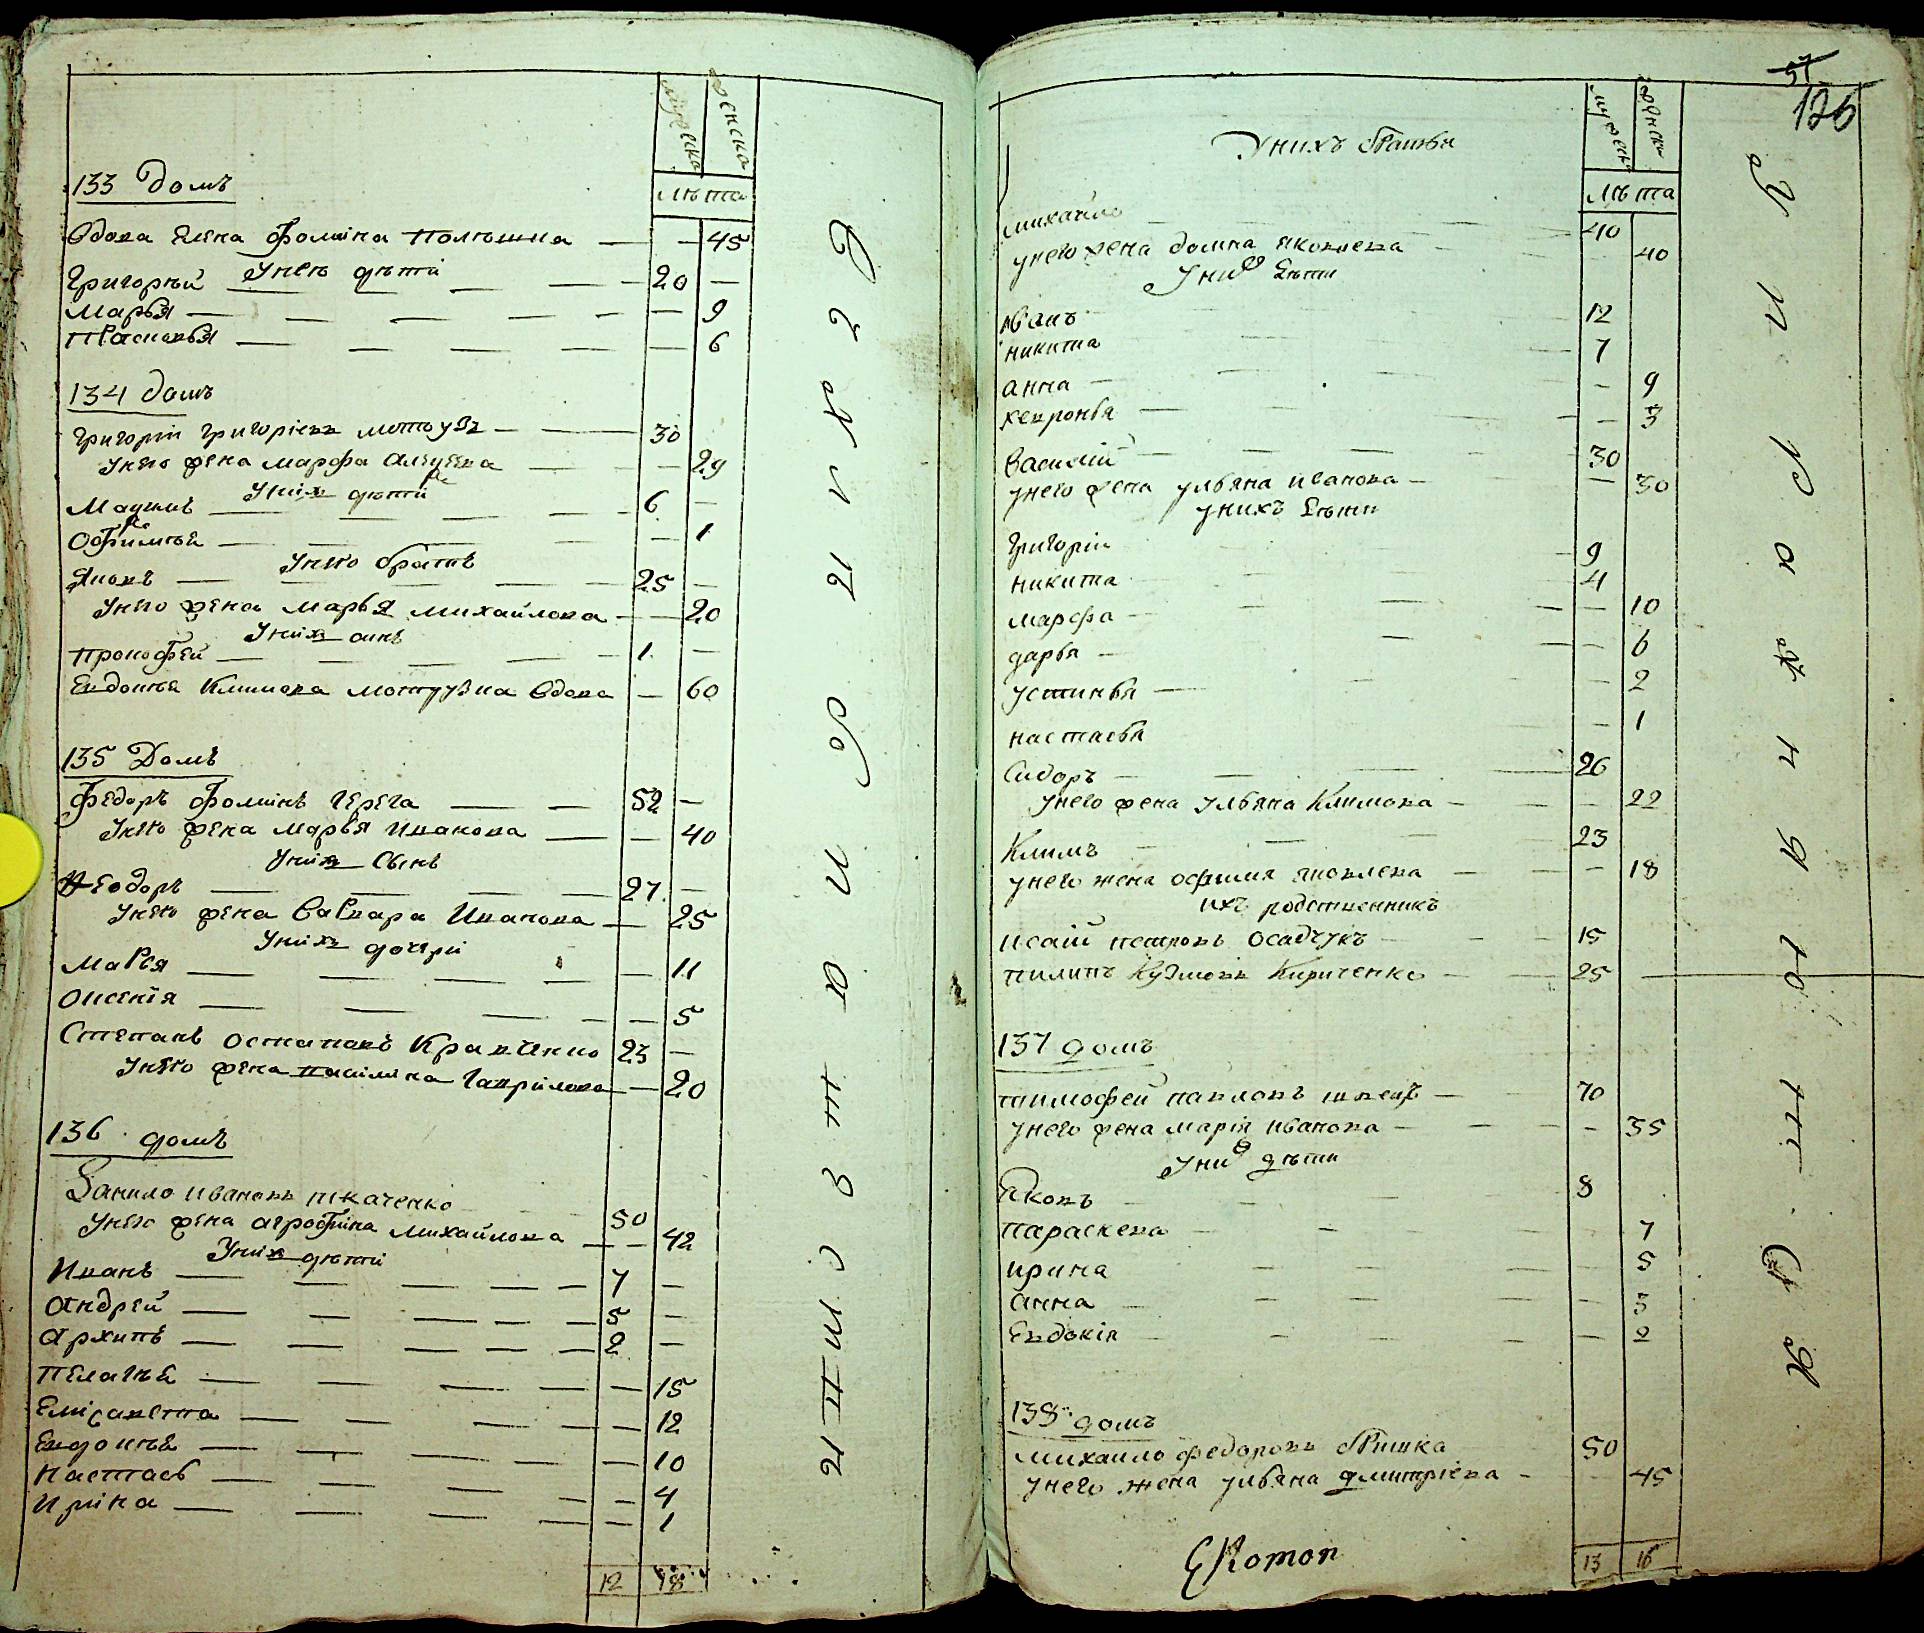 мужеска женска
лѣта
133 домъ
Вдова Елена Фомина Полѣшка 45
Унею дѣти
Григорѣй 20
Марья 9
Прасковья 6
134 домъ
Григорій Григоріевъ Мотузъ 30
Унего жена Марфа Алеѯеева 29
Уних дѣти
Маѯимъ 6
Офимѣя 1
Унего братъ
Яковъ 25
Унего жена Марья Михайлова 20
Уних синъ
Прокофей 1
Евдокѣя Климова Мотузка Вдова 60
135 Домъ
Федоръ Фоминъ Герега 52
Унего жена Марья Иванова 40
Уних Сынъ
Феодоръ 27
Унего жена Варвара Иванова 25
Уних дочери
Марья 11
Оксенія 5
Степанъ Остаповъ Кравченко 23
Унего жена Гаврилова 20
136 домъ
Данило Ивановъ Ткаченко 50
Унего жена Агрофина Михайлова 42
Уних дѣти
Иванъ 7
Андрей 5
Архипъ 2
Пелагѣя 15
Елисавета 12
Евдокѣя 10
Настась 4
Ирина 1
12 18
57
126
мужеск женска
лѣта
Унихъ братья
Михайло 40
унего жена Домна Яковлева 40
Уних дѣти
Иванъ 12
никита 7
анна 9
хевронья 3
Василій 30
унего жена ульяна иванова 30
унихъ дѣти
Григорій 9
никита 4
марфа 10
дарья 6
устинья 2
настасья 1
Сидоръ 26
унего жена ульяна Климова 22
Климъ 23
унего жена офимия яковлева 18
ихъ родственникъ
исаій петровъ осадчукъ 15
пилипъ Кузмовъ Кириченко 25
137 домъ
тимофей павловъ швецъ 70
унего жена марія иванова 35
Уних дѣти
Яковъ 8
параскева 7
ирина 5
анна 3
Евдокія 2
138 домъ
михайло федоровъ 50
унего жена ульяна дмитріева 45
13 16